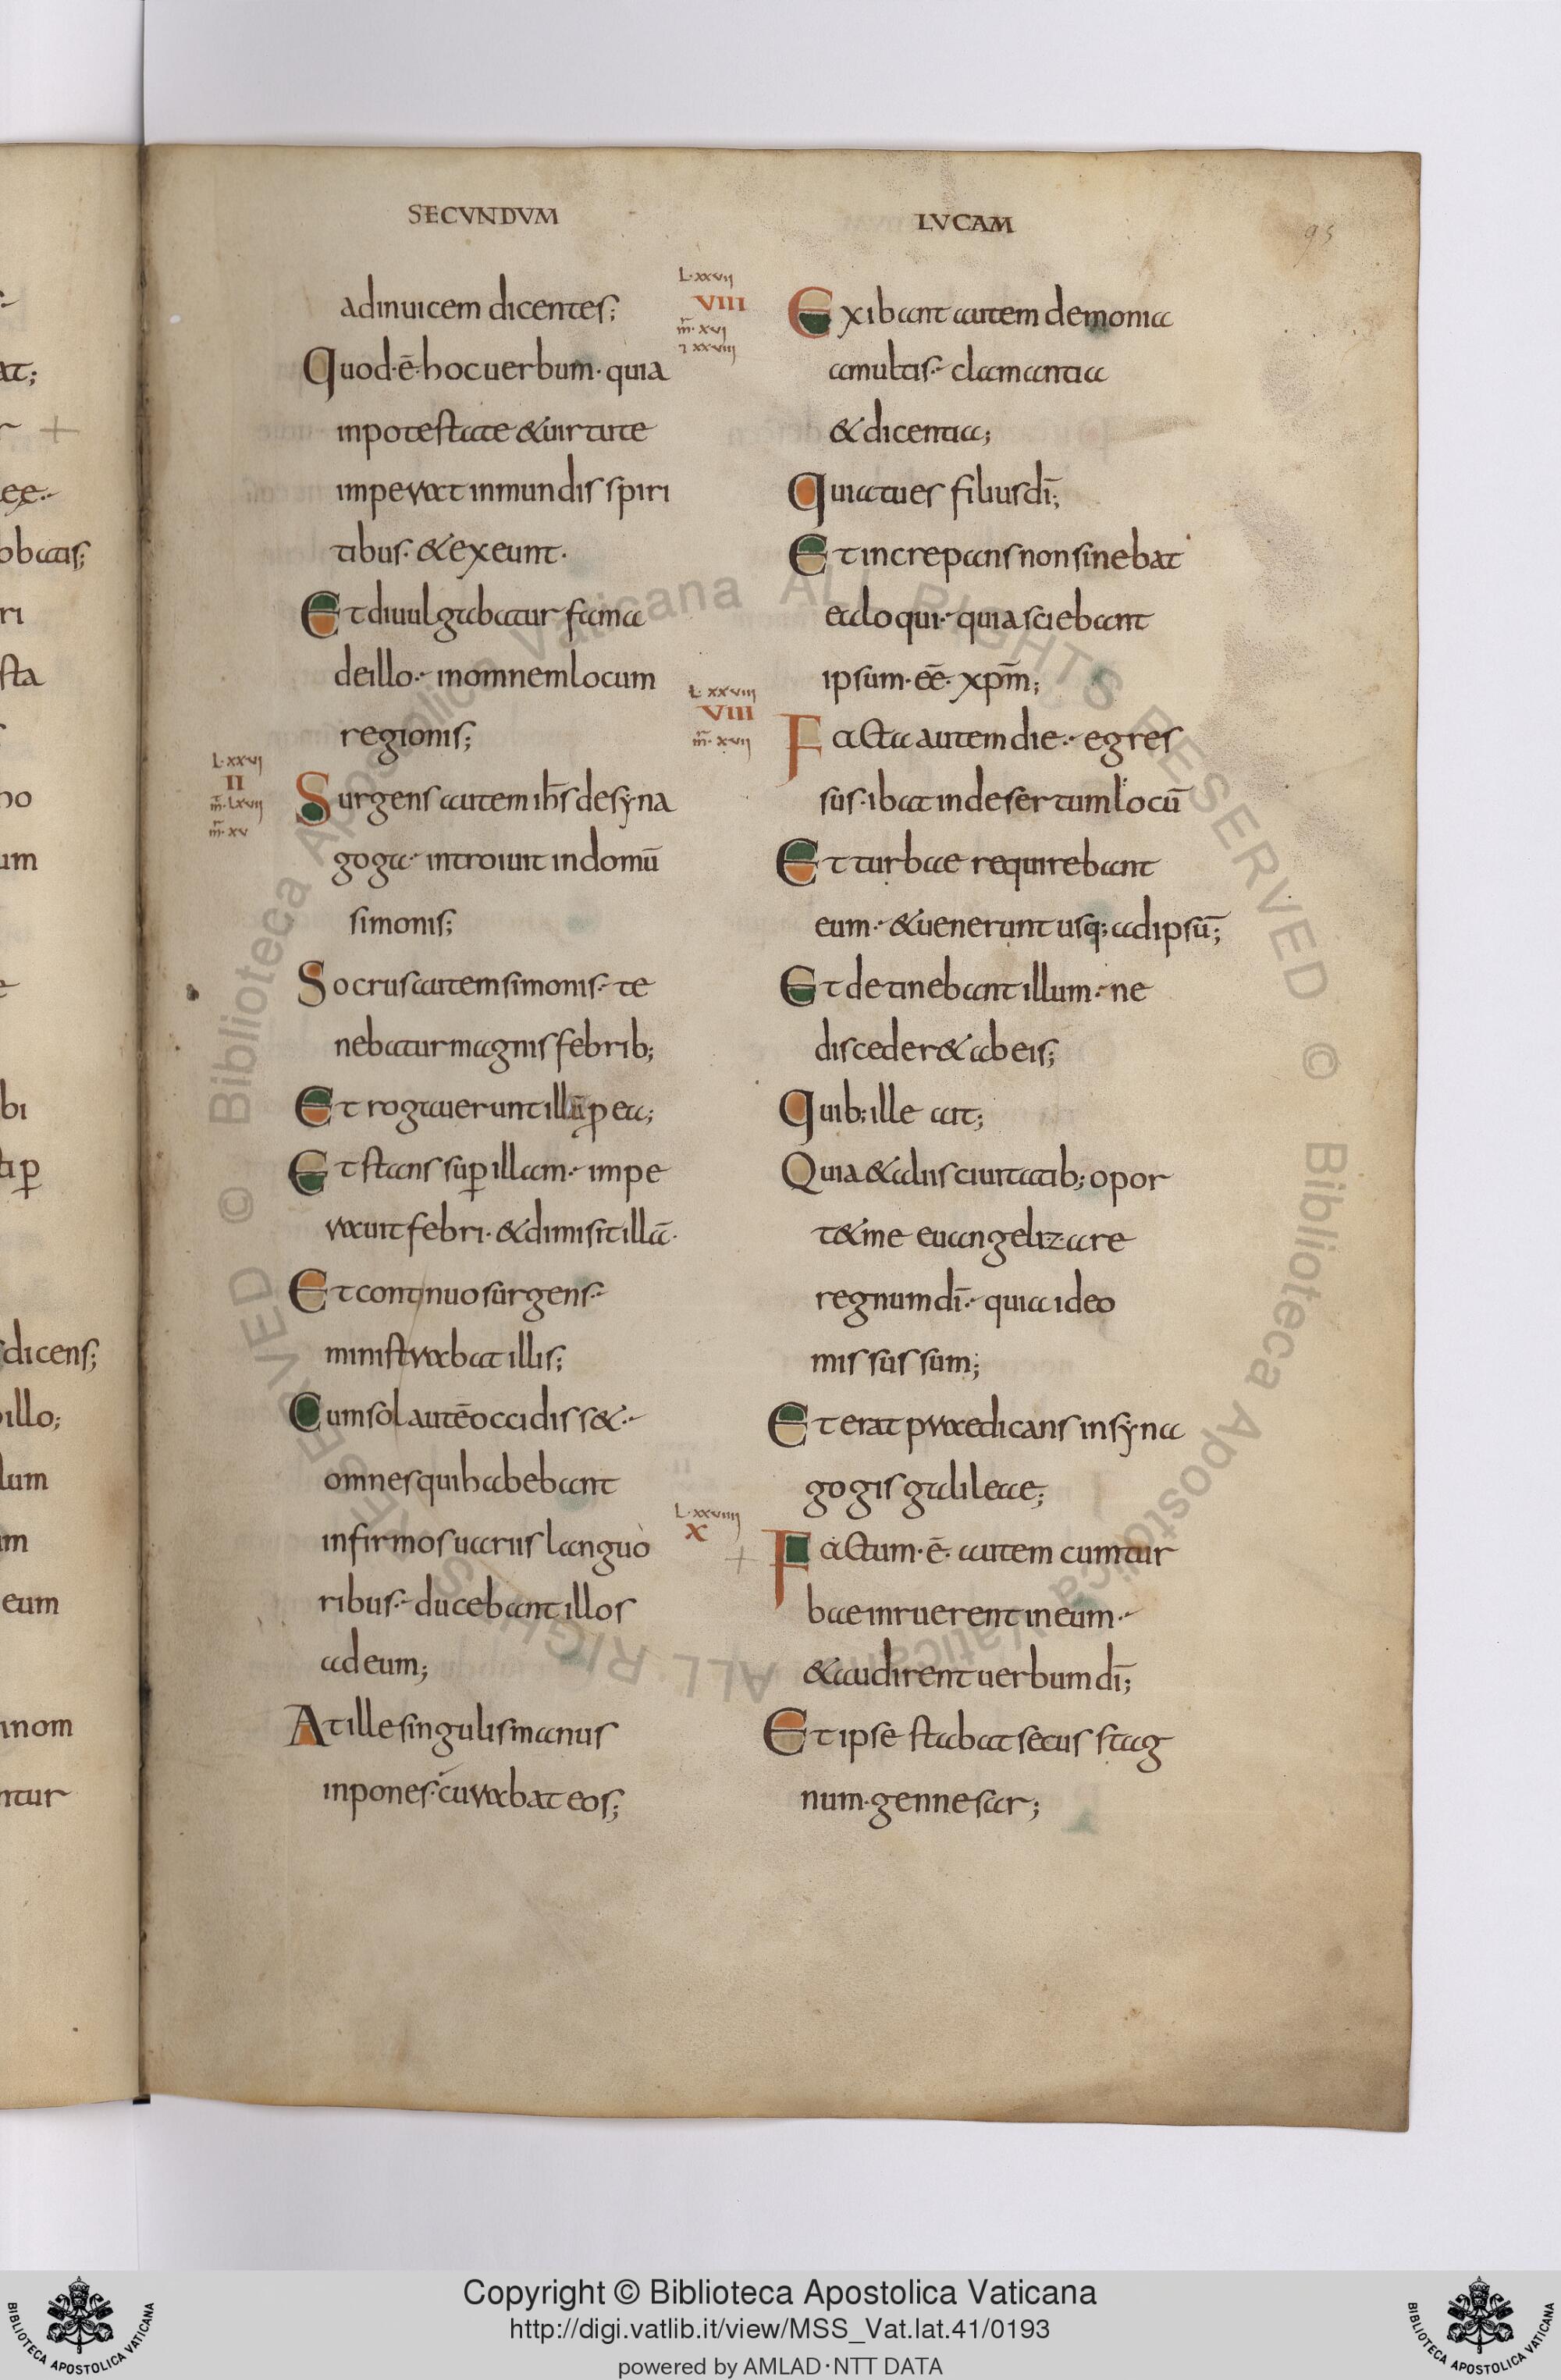 SECVNDVM
adinuicem dicentes;
Quod·ē·hocuerbum·quia
inpotestate &uirtute
imperat inmundis spiri
tibus· &exeunt·
Et diuulgabatur fama
deillo·- inomnemlocum
regionis;
L·xxvi
II
m̄·lxvii
m̄·xv
Surgens autem ihs̄ desyna
goga·- introiuit indomū
simonis;
Socrus autem simonis·- te
nebatur magnis febrib;
Et rogauerunt illū ꝑ ea;
Et stans suꝑ illam·- impe
rauit febri· &dimisit illā·
Et continuo surgens·-
ministrabat illis;
Cum sol autē occidiss&·-
omnes qui habebant
infirmos uariis languo
ribus·- ducebant illos
ad eum;
At ille singulis manus
inpones·curabat eos;
LVCAM
95
L·xxvii
VIII
m̄·xvi
⁊ xxviii
Exibant autem demonia
amultis·- clamantia
&dicentia;
Quia tu es filius dī;
Et increpans non sinebat
ea loqui·- quia sciebant
ipsum·eē· xpm̄;
L·xxviii
VIII
m̄·xvii
Facta autem die·- egres
sus·ibat in desertum locū
Et turbae requirebant
eum·- &uenerunt usq; ad ipsū;
Et detinebant illum·- ne
disceder& ab eis;
Quib; ille ait;
Quia &aliis ciuitatib; opor
t& me euangelizare
regnum dī·- quia ideo
missus sum;
Et erat praedicans in syna
gogis galileae;
L·xxviiii
X
Factum·ē· autem cum tur
bae inruerent in eum·-
&audirent uerbum dī;
Et ipse stabat secus stag
num·gennesar;
Copyright © Biblioteca Apostolica Vaticana
http://digi.vatlib.it/view/MSS_Vat.lat.41/0193
powered by AMLAD·NTT DATA
BIBLIOTECA APOSTOLICA VATICANA
BIBLIOTECA APOSTOLICA VATICANA
© Biblioteca Apostolica Vaticana ALL RIGHTS RESERVED © Biblioteca Apostolica Vaticana ALL RIGHTS RESERVED